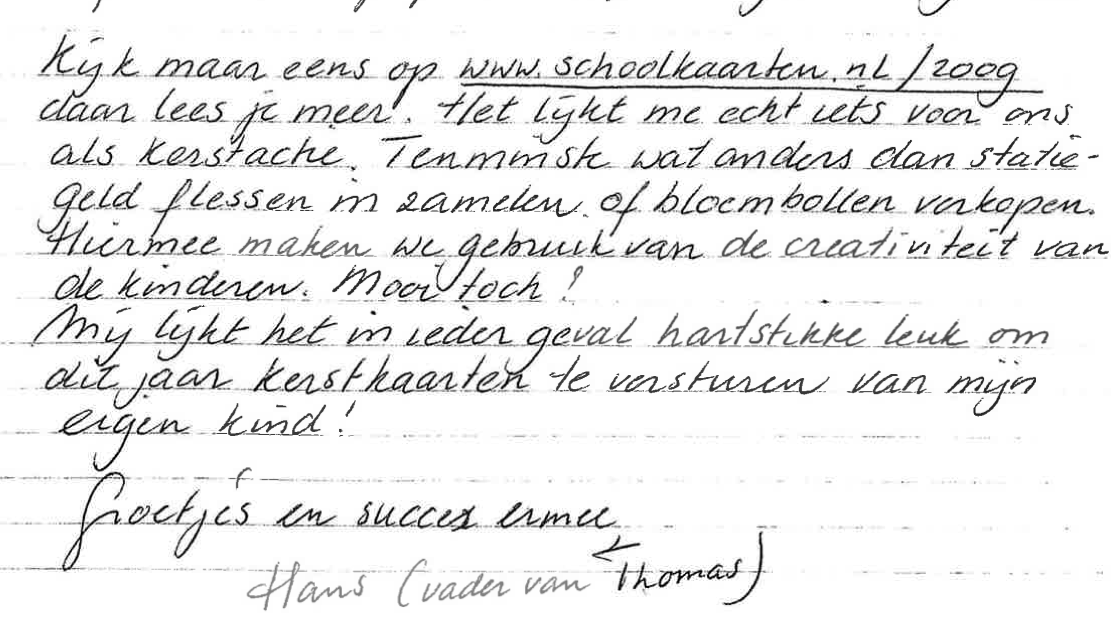 Kijk maar eens op www.schoolkaarten.nl/2009
daar lees je meer. Het lijkt me echt iets voor ons
als kerstactie. Tenminste wat anders dan statie-
geld flessen in zamelen of bloembollen verkopen.
Hiermee maken we gebruik van de creativiteit van
de kinderen. Mooi toch!
Mij lijkt het in ieder geval hartstikke leuk om
dit jaar kerstkaarten te versturen van mijn
eigen kind!
Groetjes en succes ermee
Hans (vader van Thomas)